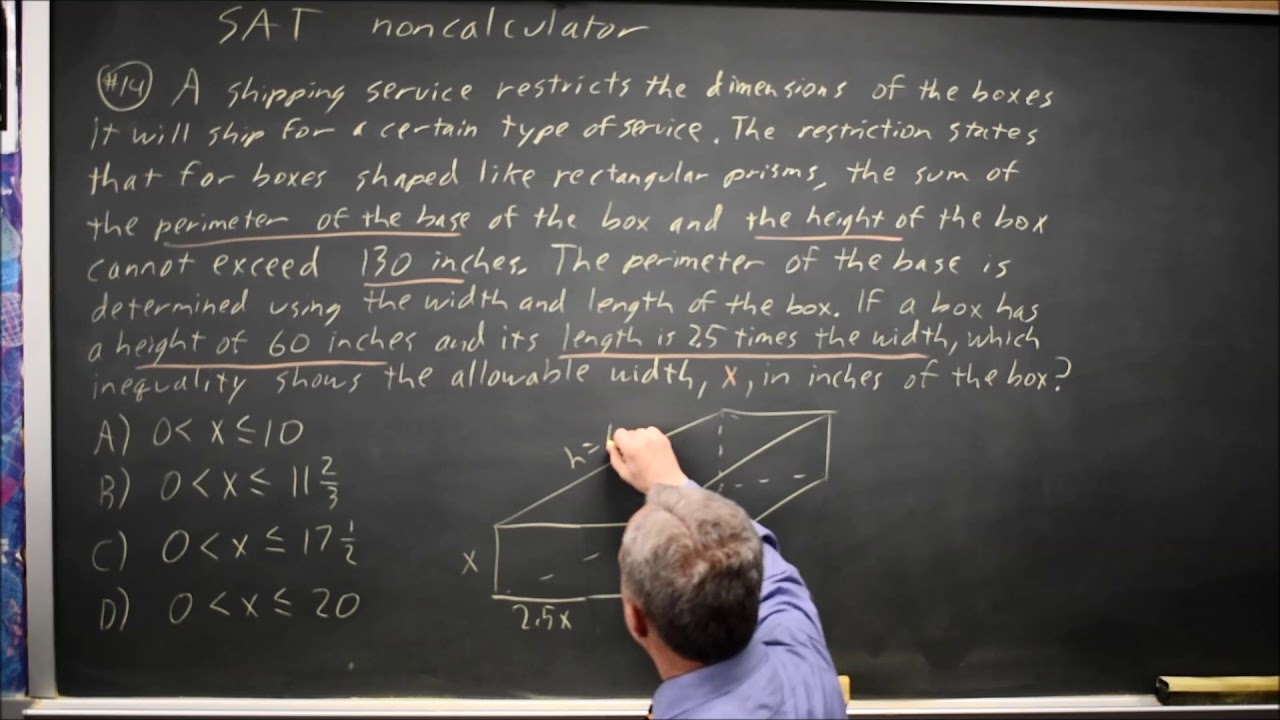 SAT noncalculator
#14 A shipping service restricts the dimensions of the boxes
it will ship for a certain type of service. The restriction states
that for boxes shaped like rectangular prisms, the sum of
the perimeter of the base of the box and the height of the box
cannot exceed 130 inches. The perimeter of the base is
determined using the width and length of the box. If a box has
a height of 60 inches and its length is 2.5 times the width, which
inequality shows the allowable width, x, in inches of the box?
A) 0 < x ≤ 10
B) 0 < x ≤ 11 2/3
C) 0 < x ≤ 17 1/2
D) 0 < x ≤ 20
h =
x
2.5x